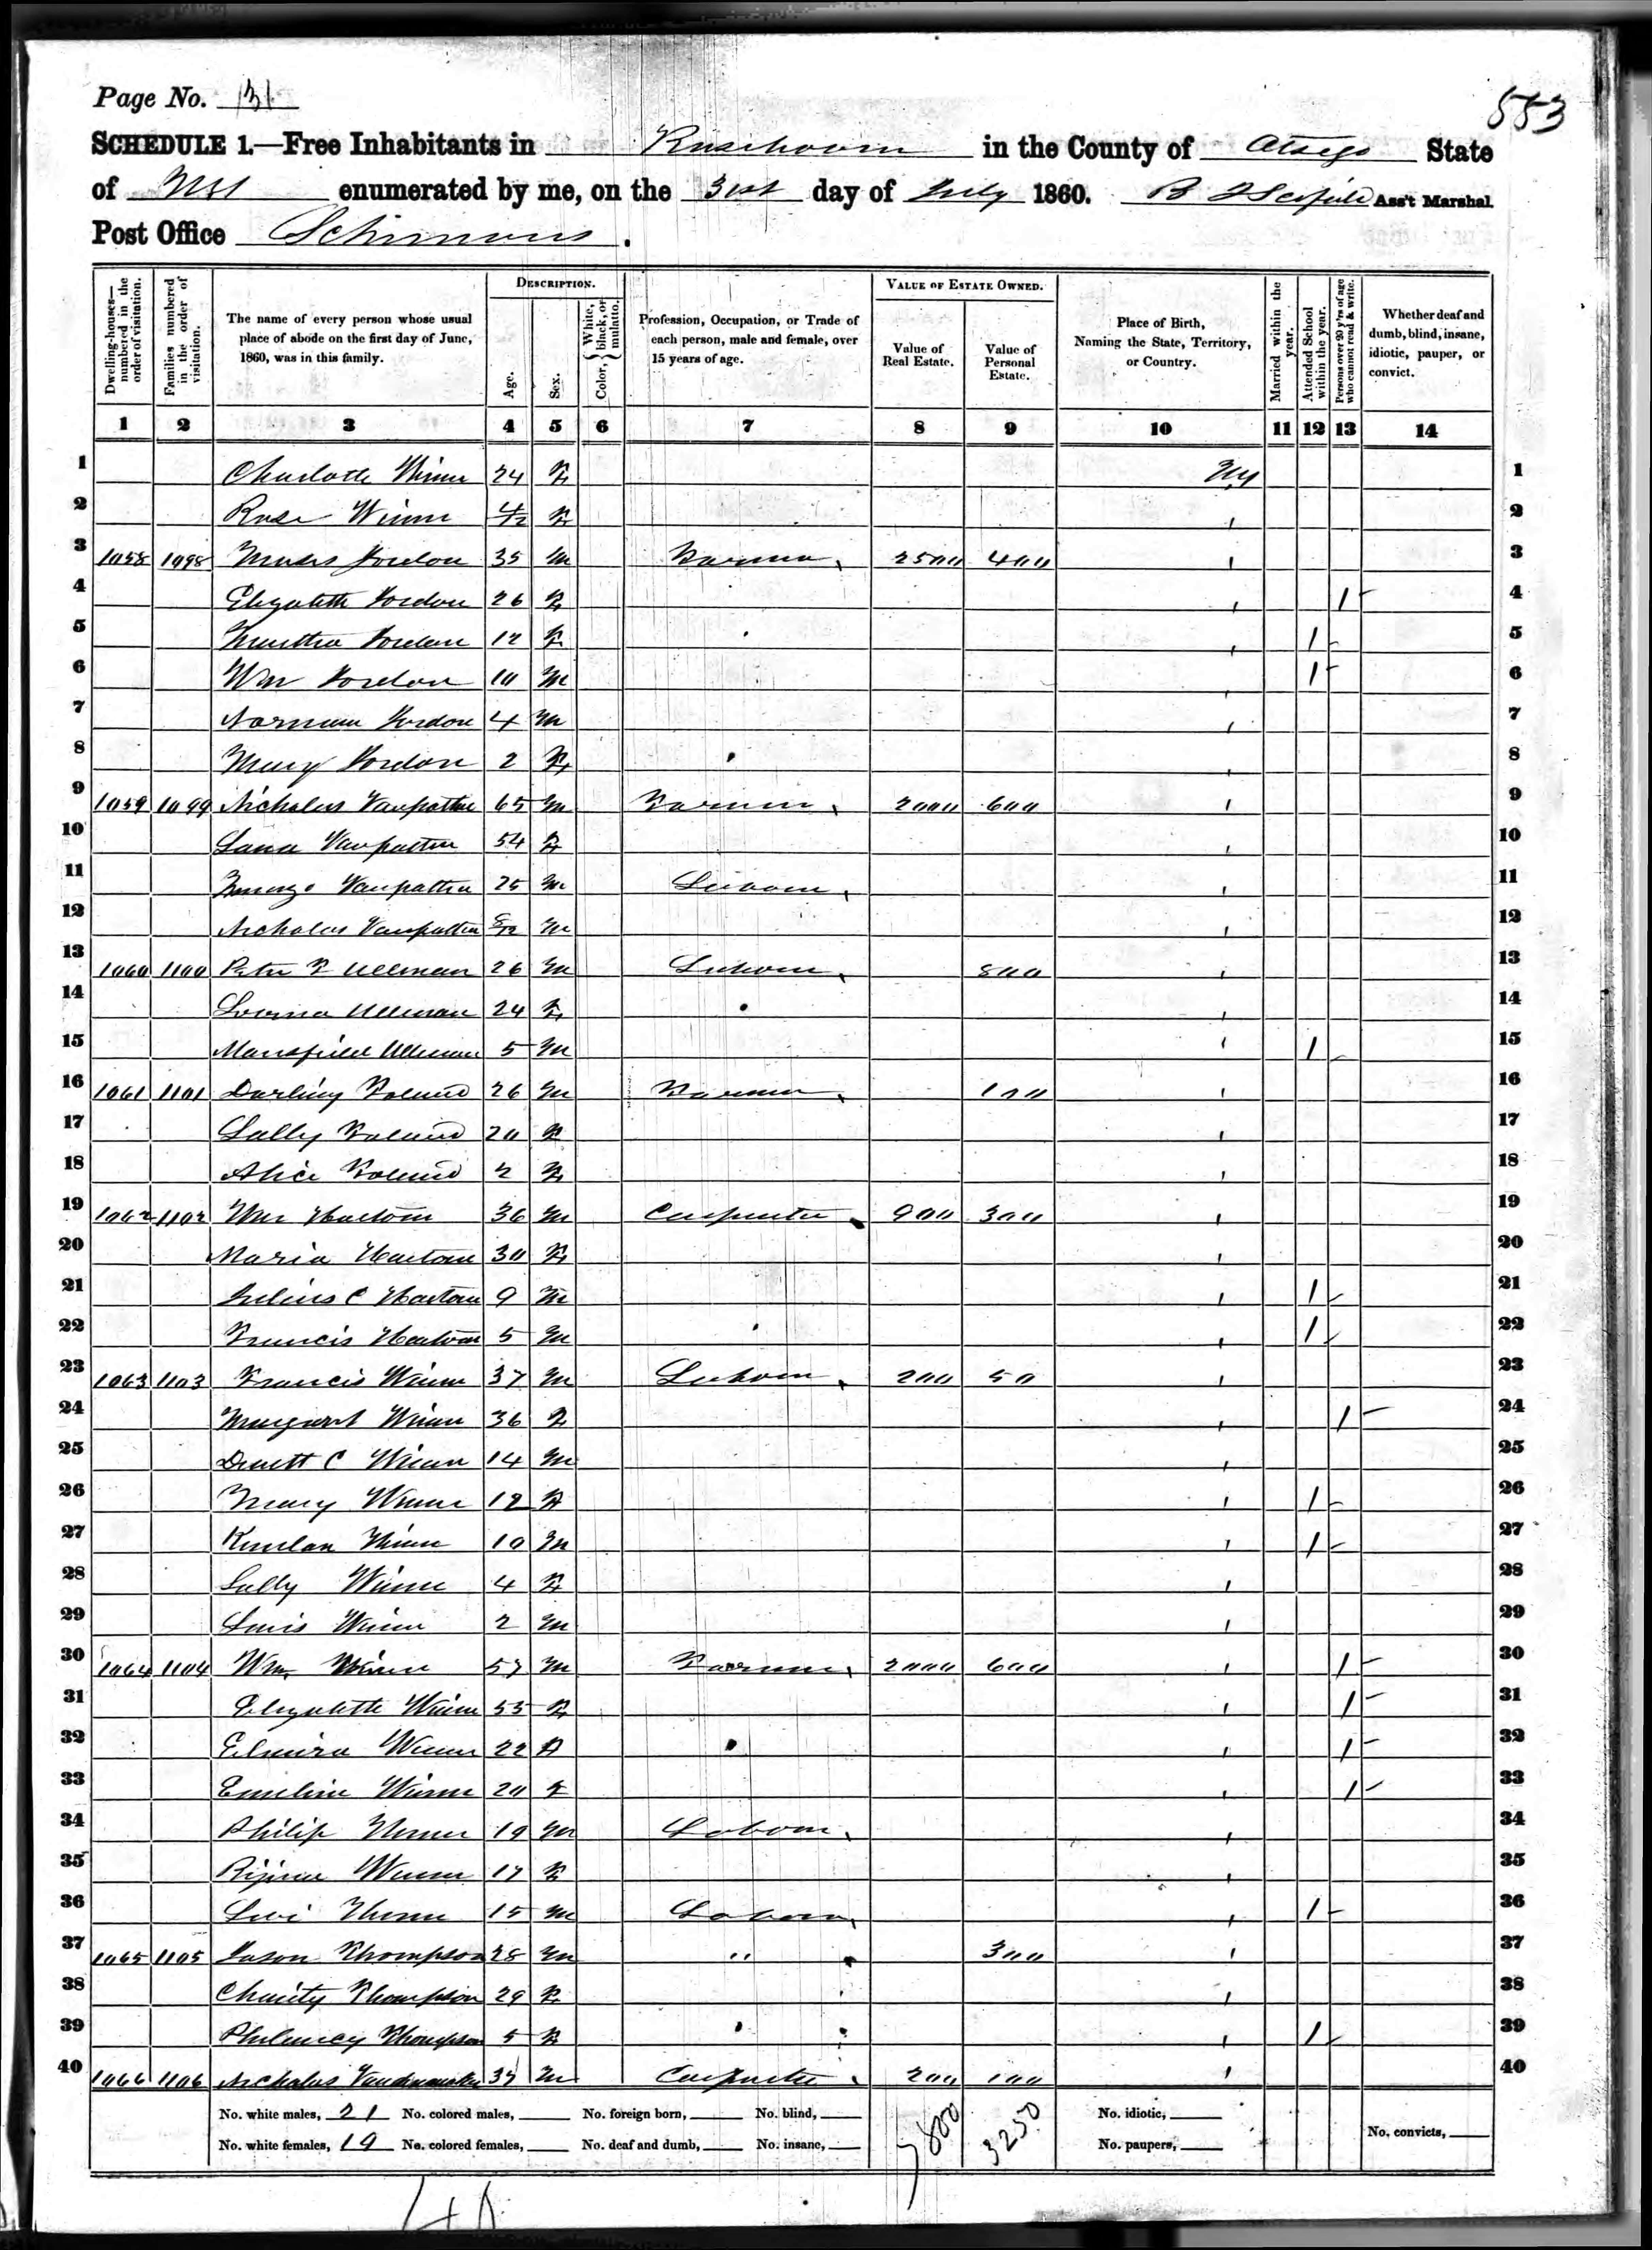 Page No. 131
553
SCHEDULE 1.—Free Inhabitants in Roseboom in the County of Otsego State
of NY enumerated by me, on the 31st day of July 1860. Ass't Marshal.
Post Office
Dwelling-houses—numbered in the order of visitation.
Families numbered in the order of visitation.
The name of every person whose usual place of abode on the first day of June, 1860, was in this family.
DESCRIPTION.
Age.
Sex.
Color, White, black, or mulatto.
Profession, Occupation, or Trade of each person, male and female, over 15 years of age.
VALUE OF ESTATE OWNED.
Value of Real Estate.
Value of Personal Estate.
Place of Birth, Naming the State, Territory, or Country.
Married within the year.
Attended School within the year.
Persons over 20 y'rs of age who cannot read & write.
Whether deaf and dumb, blind, insane, idiotic, pauper, or convict.
1 2 3 4 5 6 7 8 9 10 11 12 13 14
1 Charlotte Winne 24 F NY 1
2 Rose Winne 4/12 F " 2
3 1058 1098 Moses 35 m Farmer 2500 400 " 3
4 Elizabeth 26 F " 1 4
5 Martha 12 F " 1 5
6 Wm 10 m " 1 6
7 Norman 4 m " 7
8 Mary 2 F " 8
9 1059 1099 Nicholas Vanpatten 65 m Farmer 2000 600 " 9
10 Lana Vanpatten 54 F " 10
11 Vanpatten 25 m Laborer " 11
12 Nicholas Vanpatten m " 12
13 1060 1100 Peter F Ullman 26 m Laborer 800 " 13
14 Ullman 24 F " 14
15 Mansfield Ullman 5 m " 1 15
16 1061 1101 Darling 26 m Farmer 100 " 16
17 Sally 20 F " 17
18 Alice 2 F " 18
19 1062 1102 Wm 36 m Carpenter 900 300 " 19
20 Maria 30 F " 20
21 Julius C 9 m " 1 21
22 Francis 5 m " 1 22
23 1063 1103 Francis Winne 37 m Laborer 200 50 " 23
24 Margaret Winne 36 F " 1 24
25 Dewitt C Winne 14 m " 25
26 Mary Winne 12 F " 1 26
27 Winne 10 m " 1 27
28 Sally Winne 4 F " 28
29 Lewis Winne 2 m " 29
30 1064 1104 Wm Winne 57 m Farmer 2000 600 " 1 30
31 Elizabeth Winne 55 F " 1 31
32 Elmira Winne 22 F " 1 32
33 Emeline Winne 20 F " 1 33
34 Philip Winne 19 m Laborer " 34
35 Winne 17 F " 35
36 Levi Winne 15 m Laborer " 1 36
37 1065 1105 Jason Thompson 28 m " 300 " 37
38 Charity Thompson 29 F " 38
39 Thompson 5 F " 1 39
40 1066 1106 Nicholas m Carpenter 200 100 " 40
No. white males, 21 No. colored males, No. foreign born, No. blind, 7800 3250 No. idiotic,
No. white females, 19 No. colored females, No. deaf and dumb, No. insane, No. paupers, No. convicts,
40